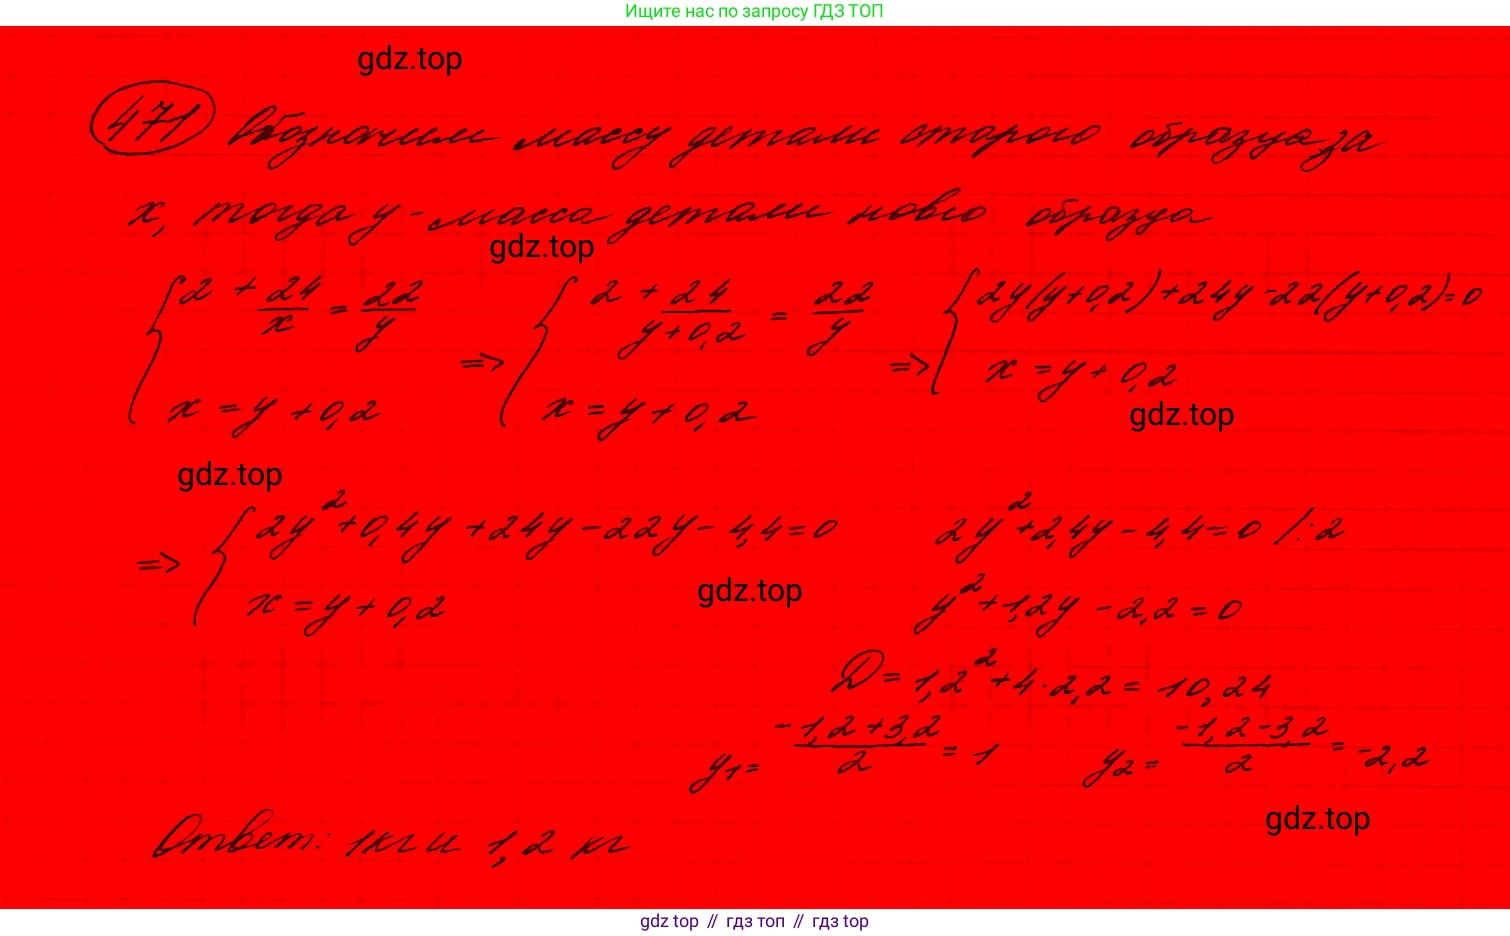 Ищите нас по запросу ГДЗ ТОП
gdz.top
471 Обозначим массу детали старого образца за
x, тогда y - масса детали нового образца
gdz.top
{ 2 + 24/x = 22/y => { 2 + 24/(y+0,2) = 22/y => { 2y(y+0,2)+24y-22(y+0,2)=0
x = y+0,2 x = y+0,2 x = y+0,2
gdz.top
gdz.top
=> { 2y²+0,4y+24y-22y-4,4=0 2y²+2,4y-4,4=0 /:2
x = y+0,2 gdz.top y²+1,2y-2,2=0
D = 1,2²+4·2,2 = 10,24
y1 = (-1,2+3,2)/2 = 1 y2 = (-1,2-3,2)/2 = -2,2
gdz.top
Ответ: 1кг и 1,2 кг
gdz top // гдз топ // гдз top